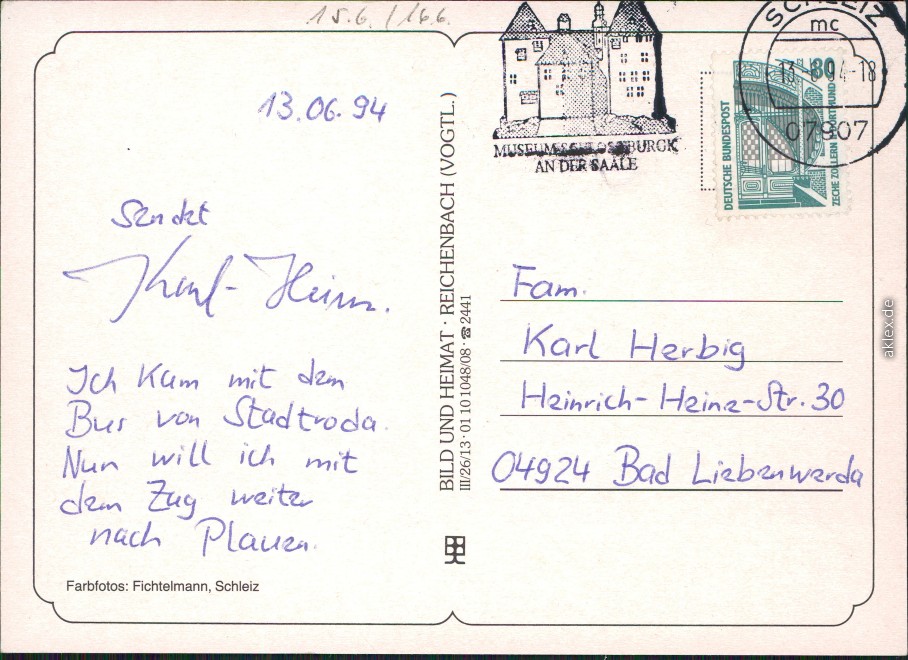 15.6./16.6.
13.06.94
Sendet
Karl-Heinz.
Ich kam mit dem
Bus von Stadtroda.
Nun will ich mit
dem Zug weiter
nach Plauen.
Farbfotos: Fichtelmann, Schleiz
BILD UND HEIMAT · REICHENBACH (VOGTL.)
III/26/13 · 01 10 1048/08 · ☎ 2441
MUSEUM SCHLOSS BURGK
AN DER SAALE
SCHLEIZ
mc
13.-6.94-18
07907
80
DEUTSCHE BUNDESPOST
ZECHE ZOLLERN II DORTMUND
Fam.
Karl Herbig
Heinrich-Heine-Str. 30
04924 Bad Liebenwerda
aklex.de